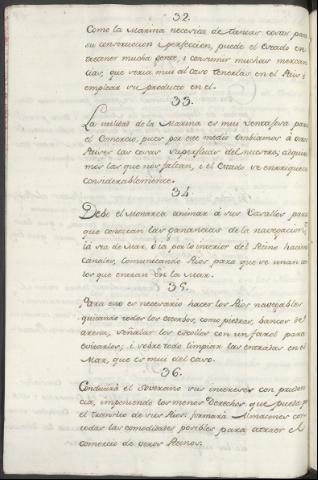 32.
Como la Marina necesita de tantas cosas para
su construccion y perfeccion, puede el Estado en
tretener mucha gente, i consumir muchas mercan
cias, que seria mui al caso tenerlas en el Pais i
emplear su producto en el.
33.
La utilidad de la Marina es mui ventajosa para
el Comercio, pues por este medio cambiamos à otros
Paises las cosas superfluas del nuestro; adquiri
mos las que nos faltan, i el Estado se enriquece
considerablemente.
34.
Debe el Monarca animar à sus Vasallos para
que conozcan las ganancias de la navegacion
ià sea de Mar, ò ià por lo interior del Reino haciendo
Canales, comunicando Rios para que se unan con
los que entran en la Mar.
35.
Para eso es necesario hacer los Rios navegables
quitando todos los estorbos, como piedras, bancos de
arena, señalar los escollos con un farol para
evitarlos; i sobre todo limpiar las entradas en el
Mar, que es mui del caso.
36.
Conducirà el Soverano sus intereses con pruden
cia, imponiendo los menos Derechos que pueda por
el transito de sus Rios: formarà Almacenes con
todas las comodidades posibles para atraer el
comercio de otros Reinos.